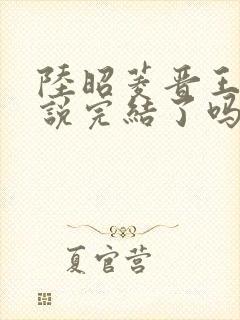 陸昭菱晋王
說完結了吗
夏官营